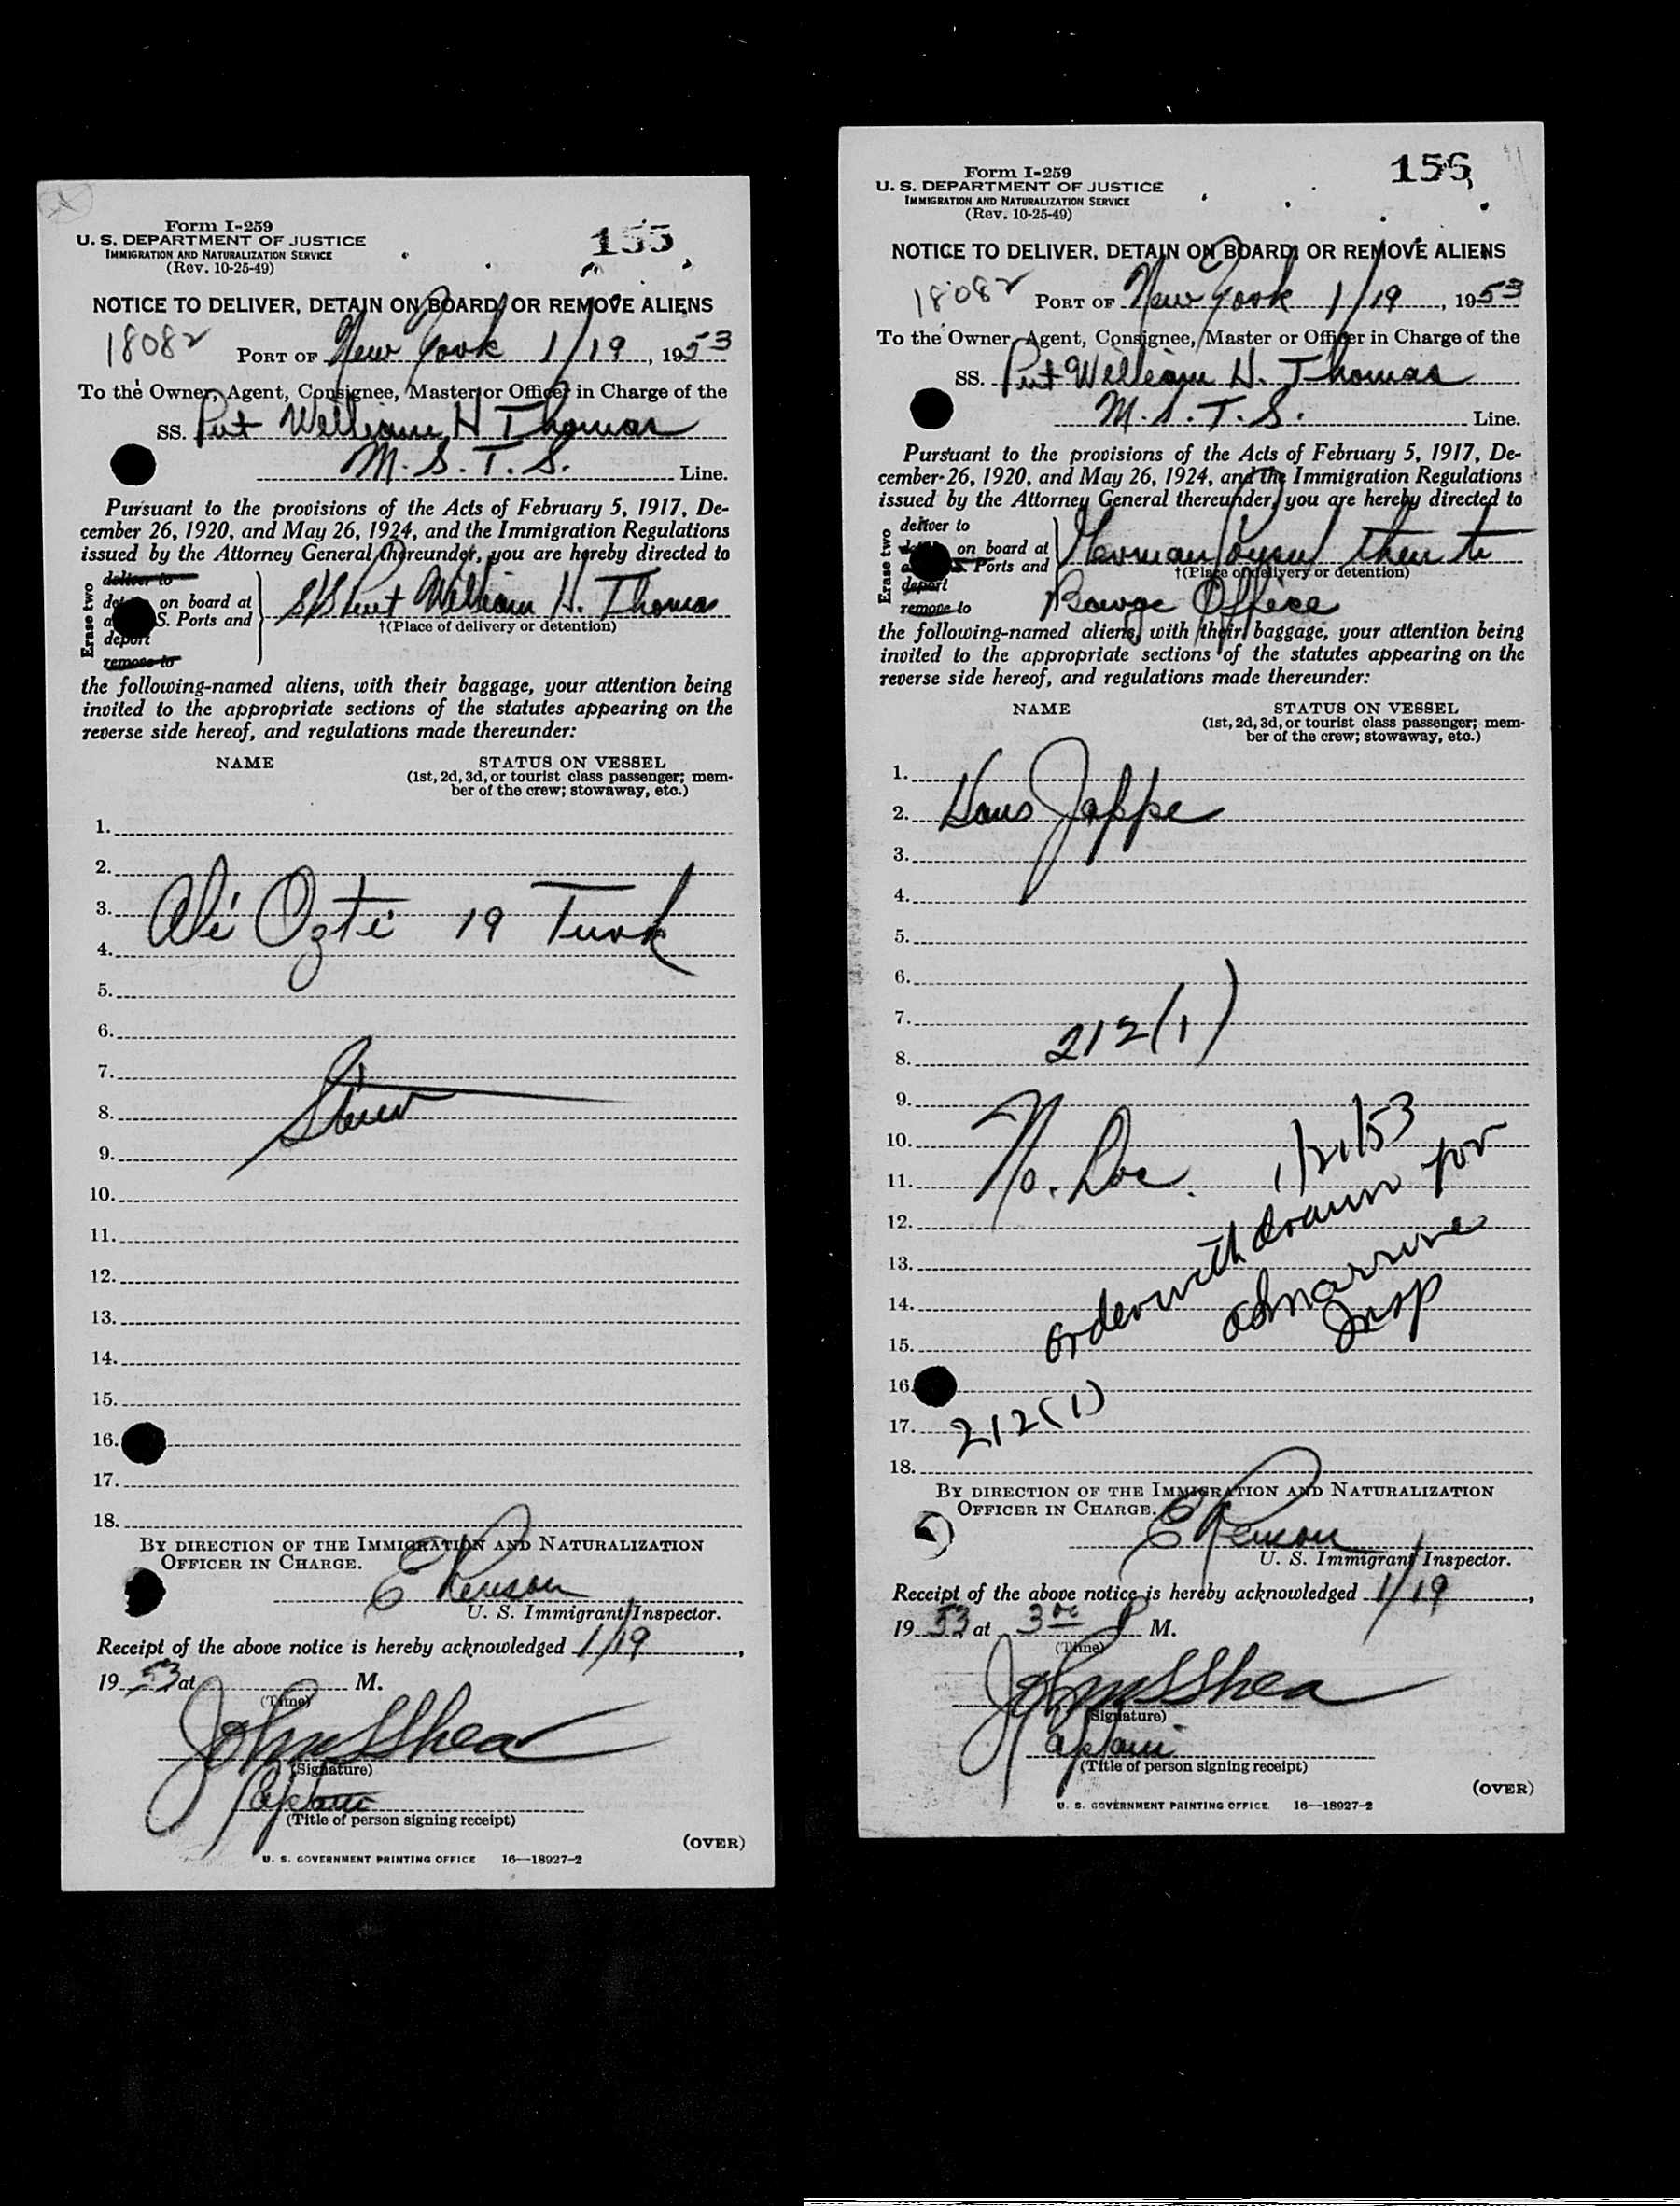 Form I-259
U. S. DEPARTMENT OF JUSTICE
IMMIGRATION AND NATURALIZATION SERVICE
(Rev. 10-25-49)
155
NOTICE TO DELIVER, DETAIN ON BOARD, OR REMOVE ALIENS
18082
PORT OF New York 1/19, 1953
To the Owner, Agent, Consignee, Master or Officer in Charge of the
SS. Pvt William H Thomas
M. S. T. S. Line.
Pursuant to the provisions of the Acts of February 5, 1917, De-
cember 26, 1920, and May 26, 1924, and the Immigration Regulations
issued by the Attorney General thereunder, you are hereby directed to
Erase two
deliver to
on board at
S. Ports and
deport
remove to
S/S Pvt William H. Thomas
†(Place of delivery or detention)
the following-named aliens, with their baggage, your attention being
invited to the appropriate sections of the statutes appearing on the
reverse side hereof, and regulations made thereunder:
NAME STATUS ON VESSEL
(1st, 2d, 3d, or tourist class passenger; mem-
ber of the crew; stowaway, etc.)
1.
2.
3. Ali Ozti 19 Turk
4.
5.
6.
7.
8.
9.
10.
11.
12.
13.
14.
15.
16.
17.
18.
BY DIRECTION OF THE IMMIGRATION AND NATURALIZATION
OFFICER IN CHARGE.
E
U. S. Immigrant Inspector.
Receipt of the above notice is hereby acknowledged 1/19,
1953 at M.
(Time)
John S Shea
(Signature)
Captain
(Title of person signing receipt)
(OVER)
U. S. GOVERNMENT PRINTING OFFICE 16—18927-2
Form I-259
U. S. DEPARTMENT OF JUSTICE
IMMIGRATION AND NATURALIZATION SERVICE
(Rev. 10-25-49)
156
NOTICE TO DELIVER, DETAIN ON BOARD, OR REMOVE ALIENS
18082
PORT OF New York 1/19, 1953
To the Owner, Agent, Consignee, Master or Officer in Charge of the
SS. Pvt William H. Thomas
M. S. T. S. Line.
Pursuant to the provisions of the Acts of February 5, 1917, De-
cember 26, 1920, and May 26, 1924, and the Immigration Regulations
issued by the Attorney General thereunder, you are hereby directed to
Erase two
deliver to
on board at
Ports and
deport
remove to
then to
†(Place of delivery or detention)
Barge Office
the following-named aliens, with their baggage, your attention being
invited to the appropriate sections of the statutes appearing on the
reverse side hereof, and regulations made thereunder:
NAME STATUS ON VESSEL
(1st, 2d, 3d, or tourist class passenger; mem-
ber of the crew; stowaway, etc.)
1.
2. Hans Jappe
3.
4.
5.
6.
7. 212(1)
8.
9.
10.
11. No. Doc. 1/21/53
12. order withdrawn for
13.
14.
15. Insp
16.
17. 212(1)
18.
BY DIRECTION OF THE IMMIGRATION AND NATURALIZATION
OFFICER IN CHARGE.
E
U. S. Immigrant Inspector.
Receipt of the above notice is hereby acknowledged 1/19,
1953 at 3 P M.
(Time)
John S Shea
(Signature)
Captain
(Title of person signing receipt)
(OVER)
U. S. GOVERNMENT PRINTING OFFICE 16—18927-2